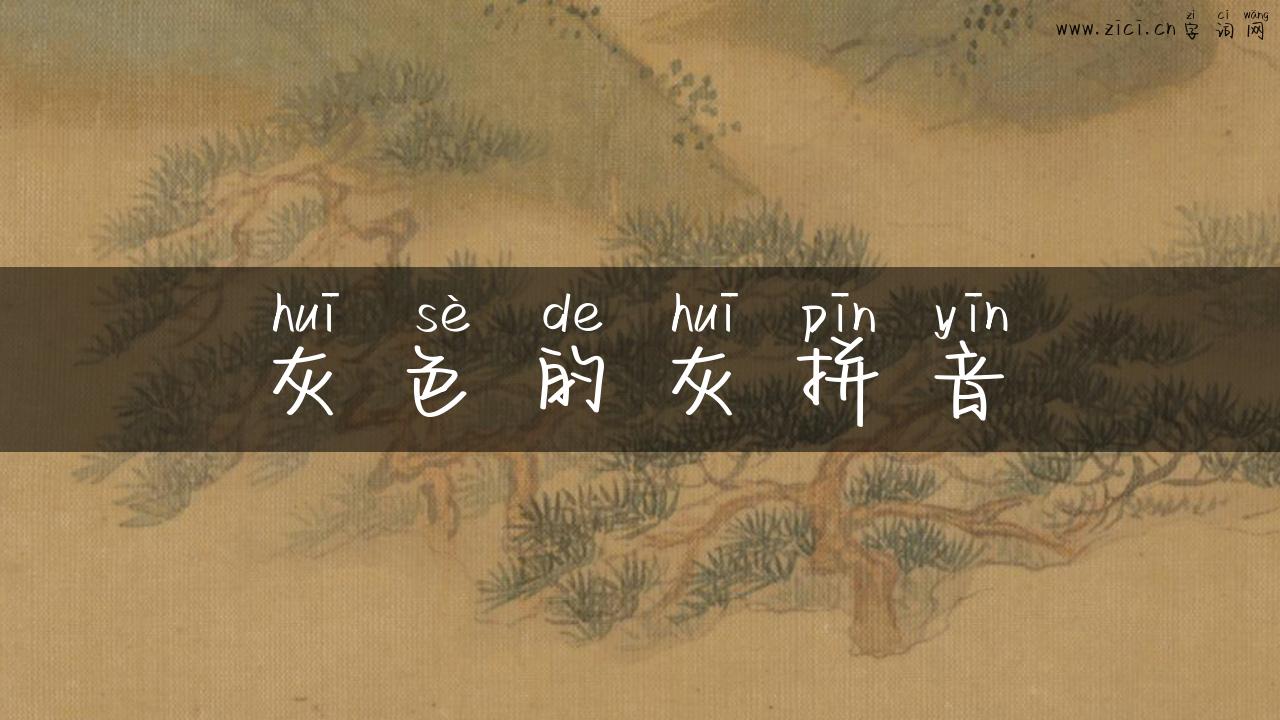 zì cí wǎng
www.zict.cn 字词网
huī sè de huī pīn yīn
灰色的灰拼音